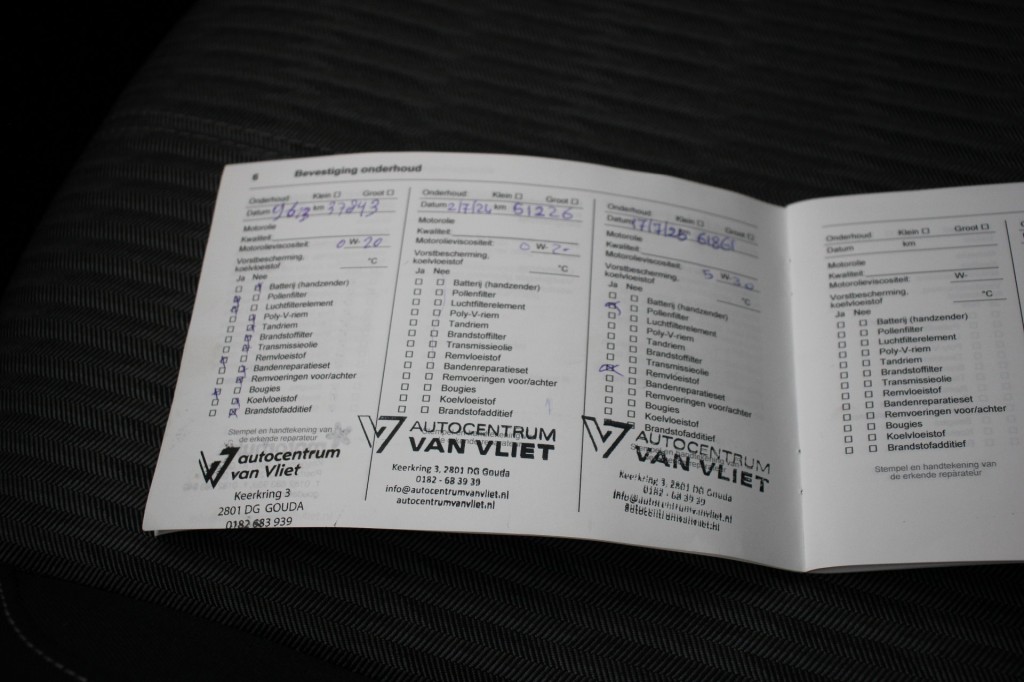 6 Bevestiging onderhoud
Onderhoud: Klein Groot
Datum km 37843
Motorolie
Kwaliteit:
Motorolieviscositeit: 0 W- 20
Vorstbescherming,
koelvloeistof °C
Ja Nee
Batterij (handzender)
Pollenfilter
Luchtfilterelement
Poly-V-riem
Tandriem
Brandstoffilter
Transmissieolie
Remvloeistof
Bandenreparatieset
Remvoeringen voor/achter
Bougies
Koelvloeistof
Brandstofadditief
Stempel en handtekening van
de erkende reparateur
autocentrum
van Vliet
Keerkring 3
2801 DG GOUDA
0182 683 939
Onderhoud: Klein Groot
Datum 2/7/24 km 51226
Motorolie
Kwaliteit:
Motorolieviscositeit: 0 W- 20
Vorstbescherming,
koelvloeistof °C
Ja Nee
Batterij (handzender)
Pollenfilter
Luchtfilterelement
Poly-V-riem
Tandriem
Brandstoffilter
Transmissieolie
Remvloeistof
Bandenreparatieset
Remvoeringen voor/achter
Bougies
Koelvloeistof
Brandstofadditief
AUTOCENTRUM
VAN VLIET
Keerkring 3, 2801 DG Gouda
0182 - 68 39 39
info@autocentrumvanvliet.nl
autocentrumvanvliet.nl
Onderhoud: Klein Groot
Datum 17/7/25 61861
Motorolie
Kwaliteit:
Motorolieviscositeit: 5 W- 30
Vorstbescherming,
koelvloeistof °C
Ja Nee
Batterij (handzender)
Pollenfilter
Luchtfilterelement
Poly-V-riem
Tandriem
Brandstoffilter
Transmissieolie
Remvloeistof
Bandenreparatieset
Remvoeringen voor/achter
Bougies
Koelvloeistof
Brandstofadditief
AUTOCENTRUM
VAN VLIET
Keerkring 3, 2801 DG Gouda
0182 - 68 39 39
info@autocentrumvanvliet.nl
autocentrumvanvliet.nl
Onderhoud: Klein Groot
Datum km
Motorolie
Kwaliteit:
Motorolieviscositeit: W-
Vorstbescherming,
koelvloeistof °C
Ja Nee
Batterij (handzender)
Pollenfilter
Luchtfilterelement
Poly-V-riem
Tandriem
Brandstoffilter
Transmissieolie
Remvloeistof
Bandenreparatieset
Remvoeringen voor/achter
Bougies
Koelvloeistof
Brandstofadditief
Stempel en handtekening van
de erkende reparateur